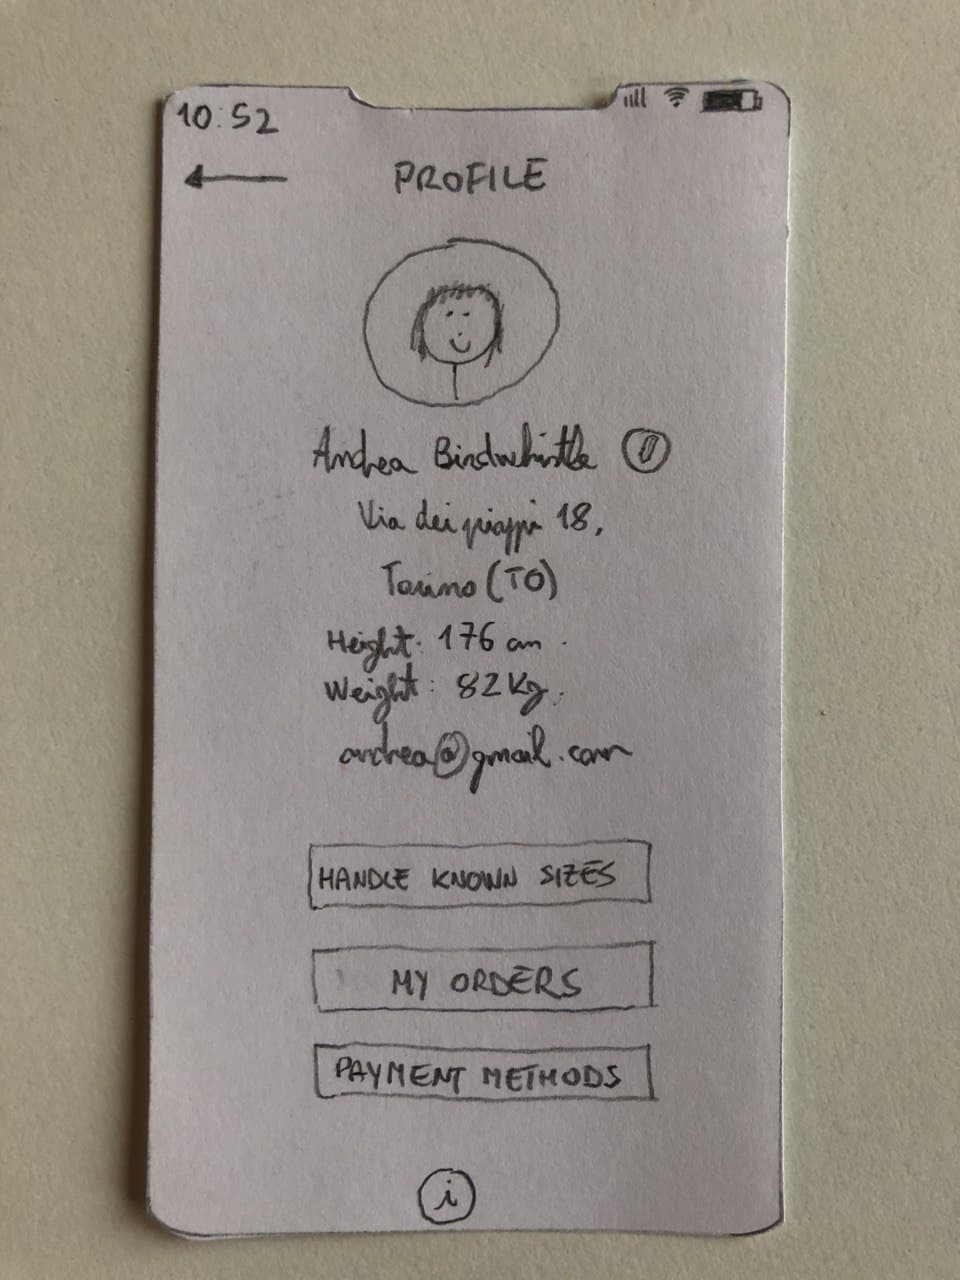 10:52
PROFILE
Andrea Birdwhistle
Via dei pioppi 18,
Torino (TO)
Height: 176 cm.
Weight: 82 Kg.
andrea@gmail.com
HANDLE KNOWN SIZES
MY ORDERS
PAYMENT METHODS
i